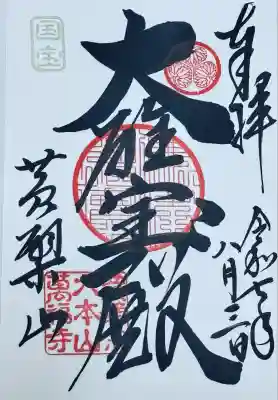 奉拝
令和七年
八月三日
大雄宝殿
黄檗山
国宝
大本山
萬福寺